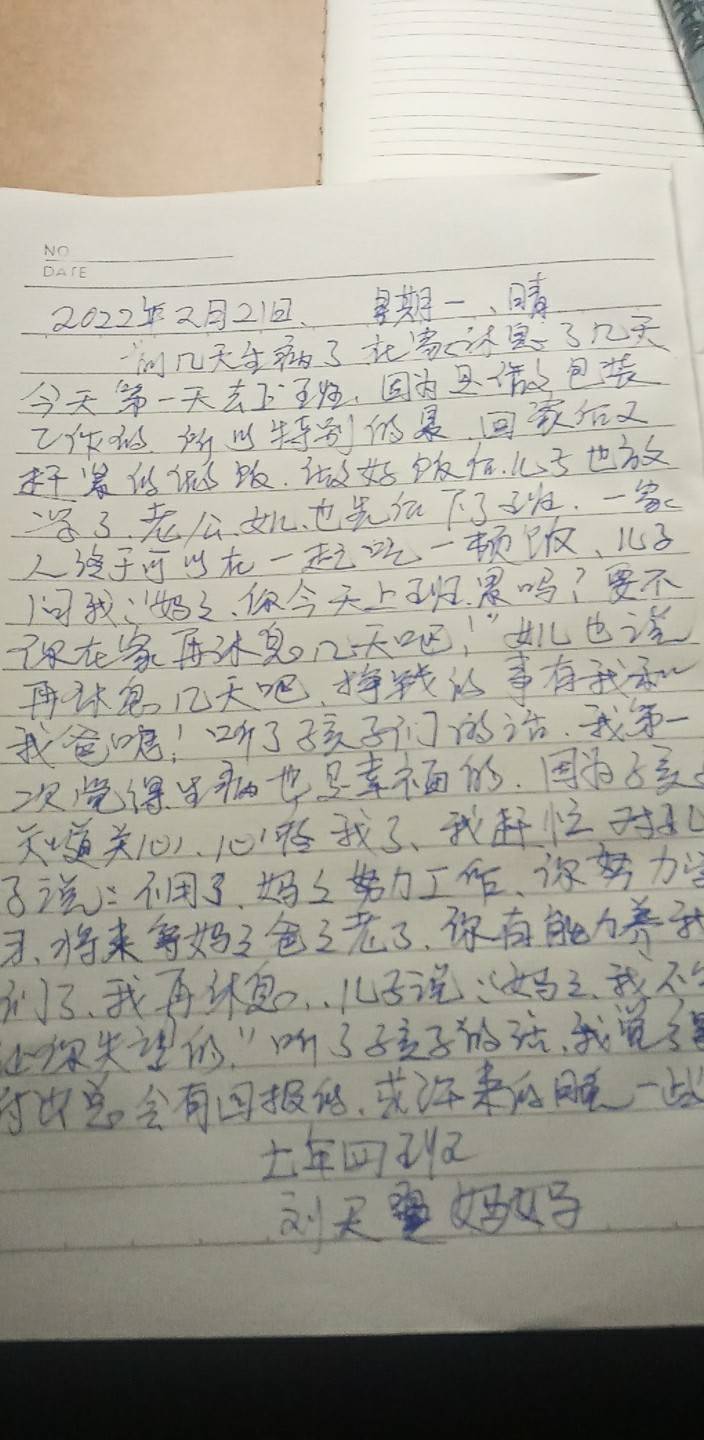 NO
DATE
2022年2月21日、 星期一、晴
前几天生病了在家休息了几天
今天第一天去上班,因为是做包装
工作的,所以特别的累,回家后又
赶紧的做饭.做好饭后.儿子也放
学了.老公、女儿也先后下了班.一家
人终于可以在一起吃一顿饭、儿子
问我:"妈妈、你今天上班累吗?要不
你在家再休息几天吧!"女儿也说
再休息几天吧,挣钱的事有我和
我爸呢!听了孩子们的话.我第一
次觉得生病也是幸福的.因为孩子
知道关心、心疼我了、我赶忙对儿
子说:不用了.妈妈努力工作、你努力学
习、将来等妈妈爸爸老了.你有能力养我
们了、我再休息。.儿子说:"妈妈、我不会
让你失望的."听了孩子的话、我觉得
付出总会有回报的.或许来的晚一些
七年四班
刘天 妈妈